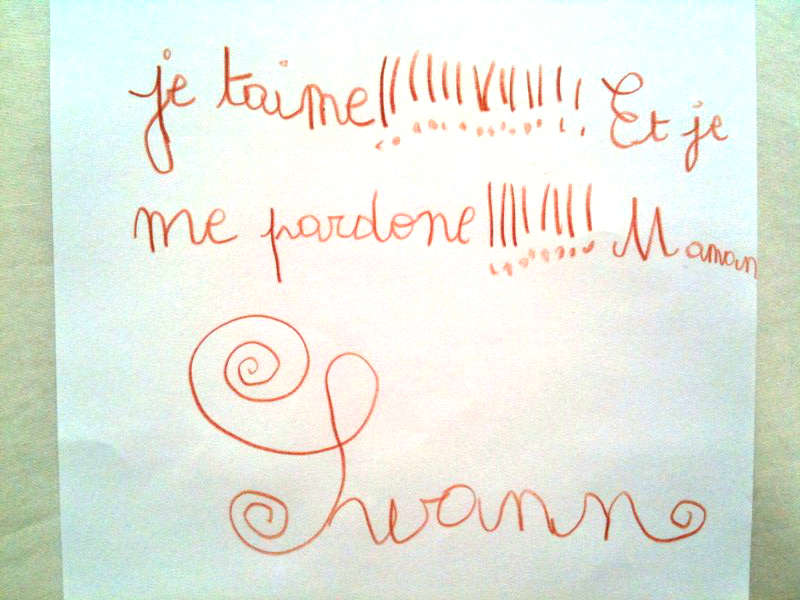 je taime!!!!!!!!!!!!!! Et je
me pardone!!!!!!!!! Maman
Swann